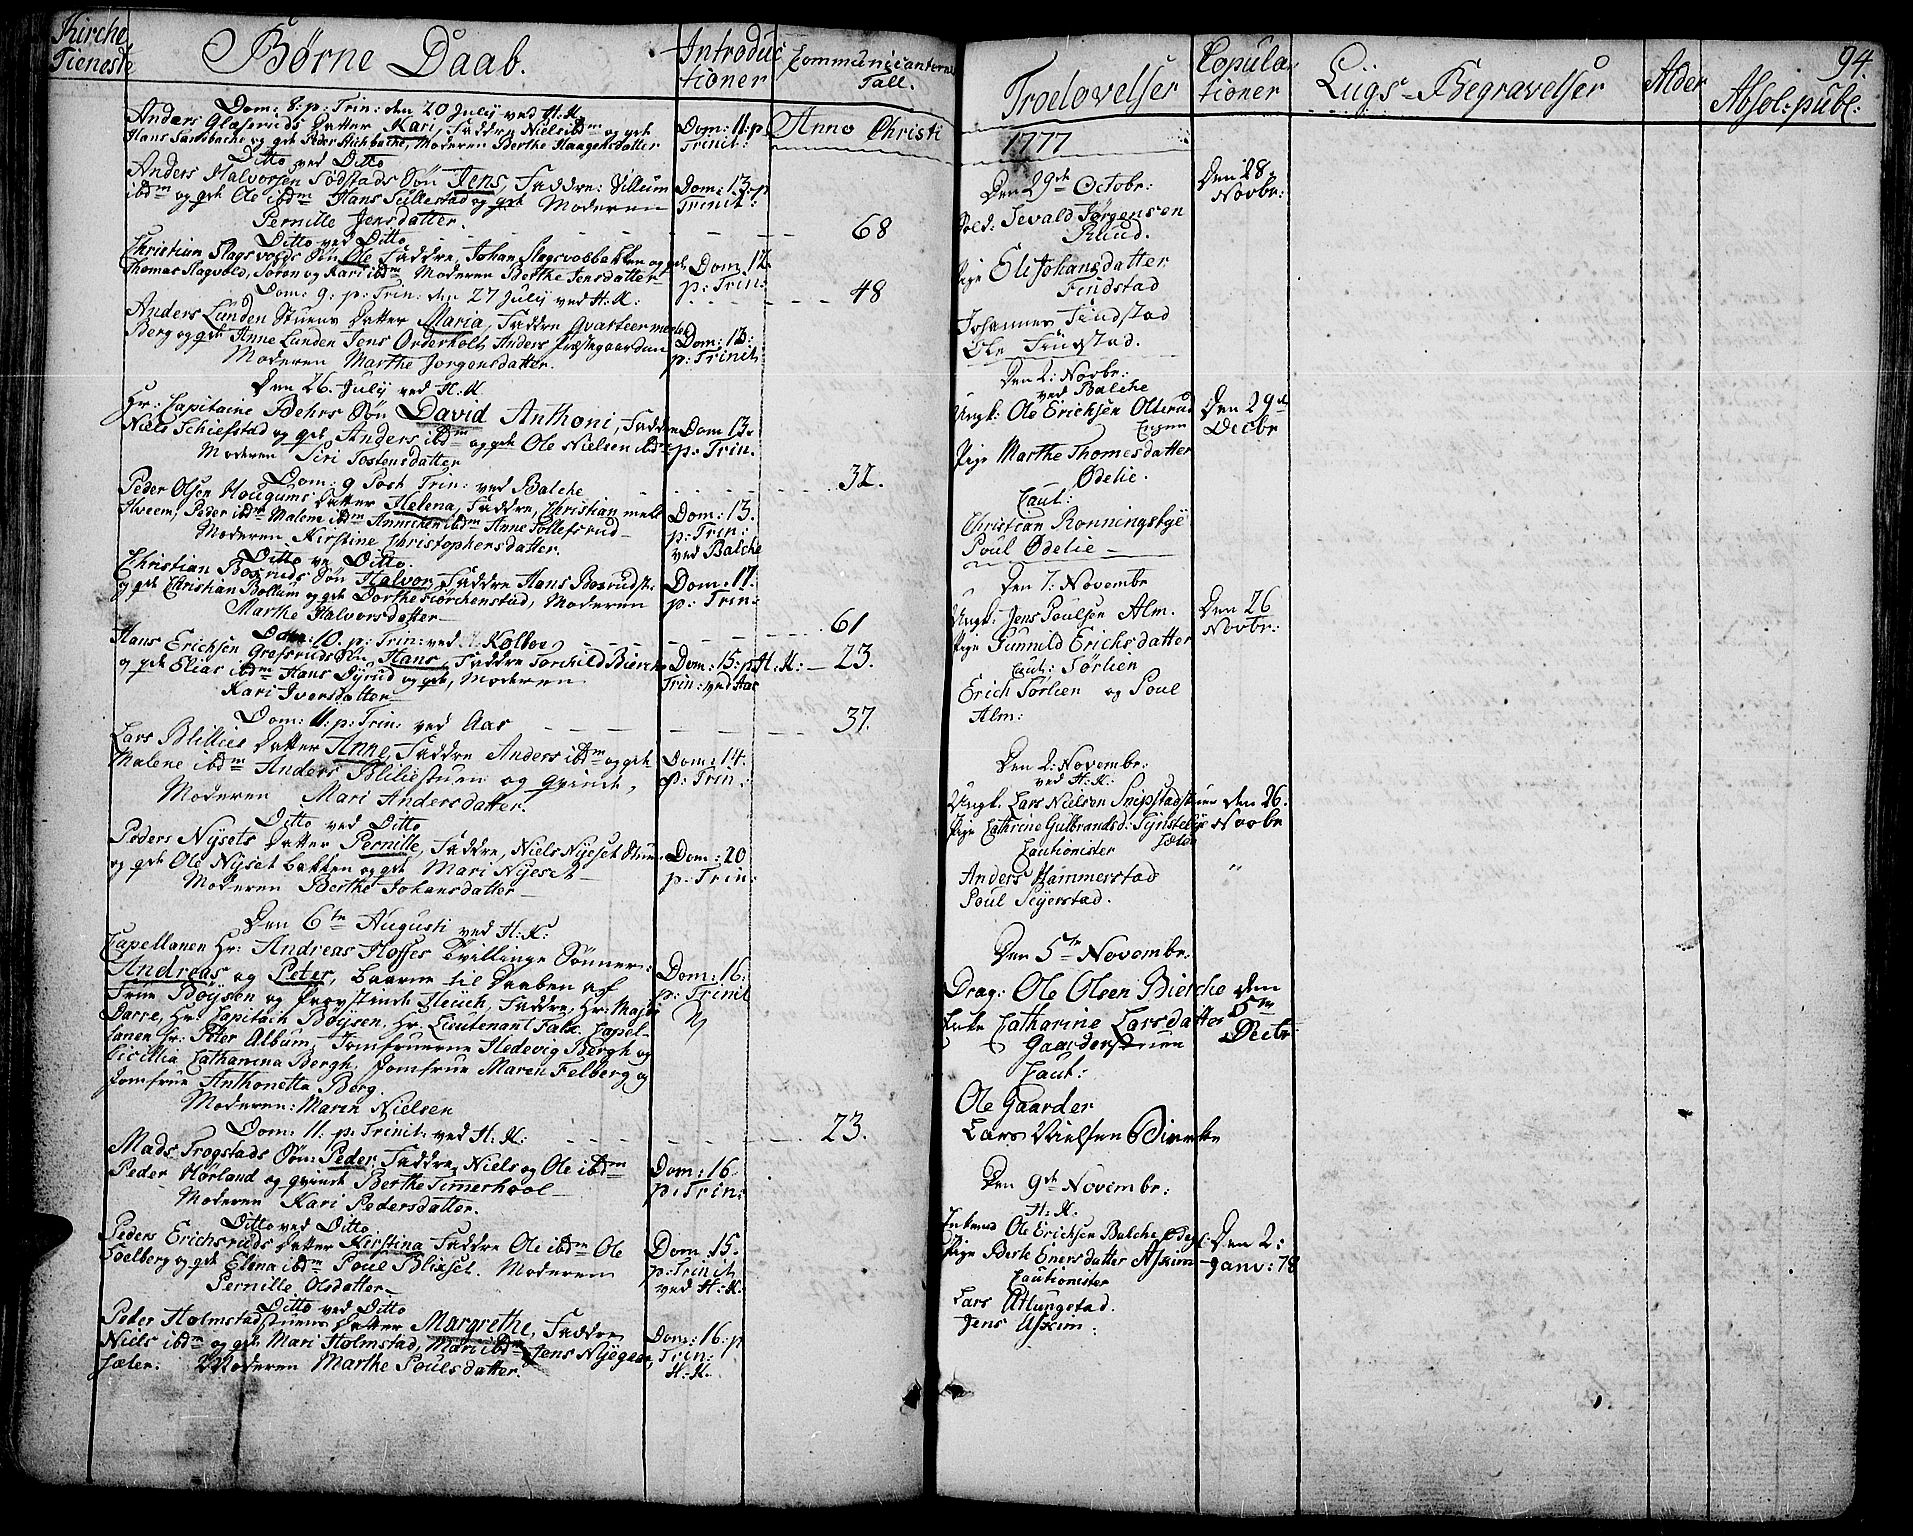 Kirche
Tieneste
Børne Daab.
Introduc
tioner
Communicanternes
Tall.
Dom: 8: p: Trin: den 20 July ved H: K:
Anders Glæseruds Datter Kari, Faddre Niels ibdm og gvt
Hans Sandbache og gvt Peder Hichbache, Moderen Berthe Haagensdatter
Dom: 11: p.
Trinit:
Anno Christi
Ditto ved Ditto
Anders Halvorsen Sødstads Søn Jens, Faddre: Villum
ibdm og gvt Ole ibdm Hans Sullestad og gvt Moderen
Pernille Jensdatter.
Dom: 13. p
Trinit:
Ditto ved Ditto 68
Christian Slagsvolds Søn Ole Faddre, Johan Slagsvolbekken og gvt
Thomas Slagvold, Søren og Kari ibdm Moderen Berthe Jensdatter
Dom. 12.
p: Trin:
Dom: 9: p: Trin: den 27 July ved H: K: 48
Anders Lunden Stuens Datter Maria, Faddre Qvarteermester
Berg og gvt Anne Lunden Jens Orderholt Anders Præstegaarden
Moderen Marthe Jorgensdatter.
Dom: 13:
p: Trinit:
Den 26. July ved H: K
Hr: Capitaine Behrs Søn David Anthoni, Faddre
Niels Schiefstad og gvt Anders ibdm og gvt Ole Nielsen ibdm
Moderen Siri Tostensdatter
Dom 13.
p: Trin.
Dom: 9 post Trin: ved Balche 32.
Peder Olsen Hougums Datter Helena, Faddre, Christian
Hveem, Peder ibdm Malene ibdm Annichen ibdm Anne Tollefsrud
Moderen Kirstine Christophersdatter.
Dom: 13.
p: Trin:
ved Balche
Ditto ved Ditto.
Christian Bosruds Søn Halvor, Faddre Hans Bosrudst.
og gvt Christian Bollum og gvt Dorthe Størchenstad, Moderen
Marthe Halvorsdatter
Dom: 17.
p: Trin:
61
Dom: 10. p: Trin: ved Kolboe 23.
Hans Erichsen Græsruds Søn Hans, Faddre Torchild Bierche
og gvt Elias ibdm Hans Dyrud og gvt, Moderen
Kari Iversdatter
Dom: 15: p H: K:
Trin: ved Aas
Dom: 11: p: Trin: ved Aas 37.
Lars Blillies Datter Anne, Faddre Anders ibdm og gvt
Malene ibdm Anders Bliliestuen og qvinde,
Moderen Mari Andersdatter.
Dom: 14.
p: Trin:
Ditto ved Ditto
Peders Nysets Datter Pernille, Faddre, Niels Nyeset Stuen
og gvt Ole Nyset bakken og gvt Mari Nyeset
Moderen Berthe Johansdatter
Dom: 20
p: Trin:
Den 6te Augusti ved H: K:
Capellanen Hr: Andreas Hoffes Tvillinge Sønner:
Andreas og Peter, baarne til Daaben af
Frue Bøysen og Provstinde Fleich, Faddre, Hr: Major
Darre, Hr: Capitain Bøysen, Hr. Lieutenant Falk, Capel-
lanen Hr: Peter Album, Jomfruerne Hedevig Bergh og
Cicillia Catharina Bergh, Jomfrue Maren Felberg og
Jomfrue Anthonetta Berg.
Moderen: Maren Nielsen
Dom: 16.
p: Trinit
Dom: 11. p: Trinit: ved H: K: 23.
Mads Trogstads Søn: Peder, Faddre, Niels og Ole ibdm
Peder Hørland og qvinde Berthe Timerhool
Moderen Kari Pedersdatter.
Dom: 16.
p: Trin:
Ditto ved Ditto
Peders Erichsruds Datter Kirstina Faddre Ole ibdm Ole
Foelberg og gvt Elena ibdm Poul Blixset. Moderen
Pernille Olsdatter
Dom. 15.
p: Trinit
ved H: K.
Ditto ved Ditto
Peder Holmstadstuens Datter Margrethe, Faddre
Niels ibdm og gvt Mari Holmstad, Mari ibdm Jens Nyegaar
Sælen. Moderen Marthe Poulsdatter.
Dom: 16: p
Trin:
H: K.
94.
Troelovelser
Copula
tioner
Liigs-Begravelser
Alder
Absol: publ:
1777
Den 29de Octobr:
Sold: Sevald Jørgensen
Ruud.
Pige Eli Johansdatter
Findstad
Johannes Findstad
Ole Findstad.
Den 28.
Novbr:
Den 2: Novbr:
ved Balche
Ungk: Ole Erichsen Olterud
Engen
Pige Marthe Thomesdatter
Ødelie.
Caut:
Christian Ronningsbye
Poul Ødelie
Den 29de
Decbr
Den 7. Novembr
Ungk. Jens Poulsen Alm.
Pige Gunnild Erichsdatter
Caut: Sørlien
Erich Sørlien og Poul
Alm:
Den 26
Novbr:
Den 2: Novembr:
ved H: K:
Ungk. Lars Nielsen Snipstadstuen
Pige Cathrine Gulbrandsd: Synstelye
Cautionister
Anders Hammerstad
Poul Seyerstad.
den 26.
Novbr
Den 5te Novembr.
Drag: Ole Olsen Bierche
Enke Catharine Larsdatter
Gaarderstuen
Caut:
Ole Gaarder
Lars Nielsen Bierche
den
5te
Decbr
Den 9de Novembr:
H: K.
Enkemd Ole Erichsen Balche Edeg:
Pige Berte Enersdatter Askim
Cautionister
Lars Utlungstad.
Jens Askim.
Den 2:
Janv: 78